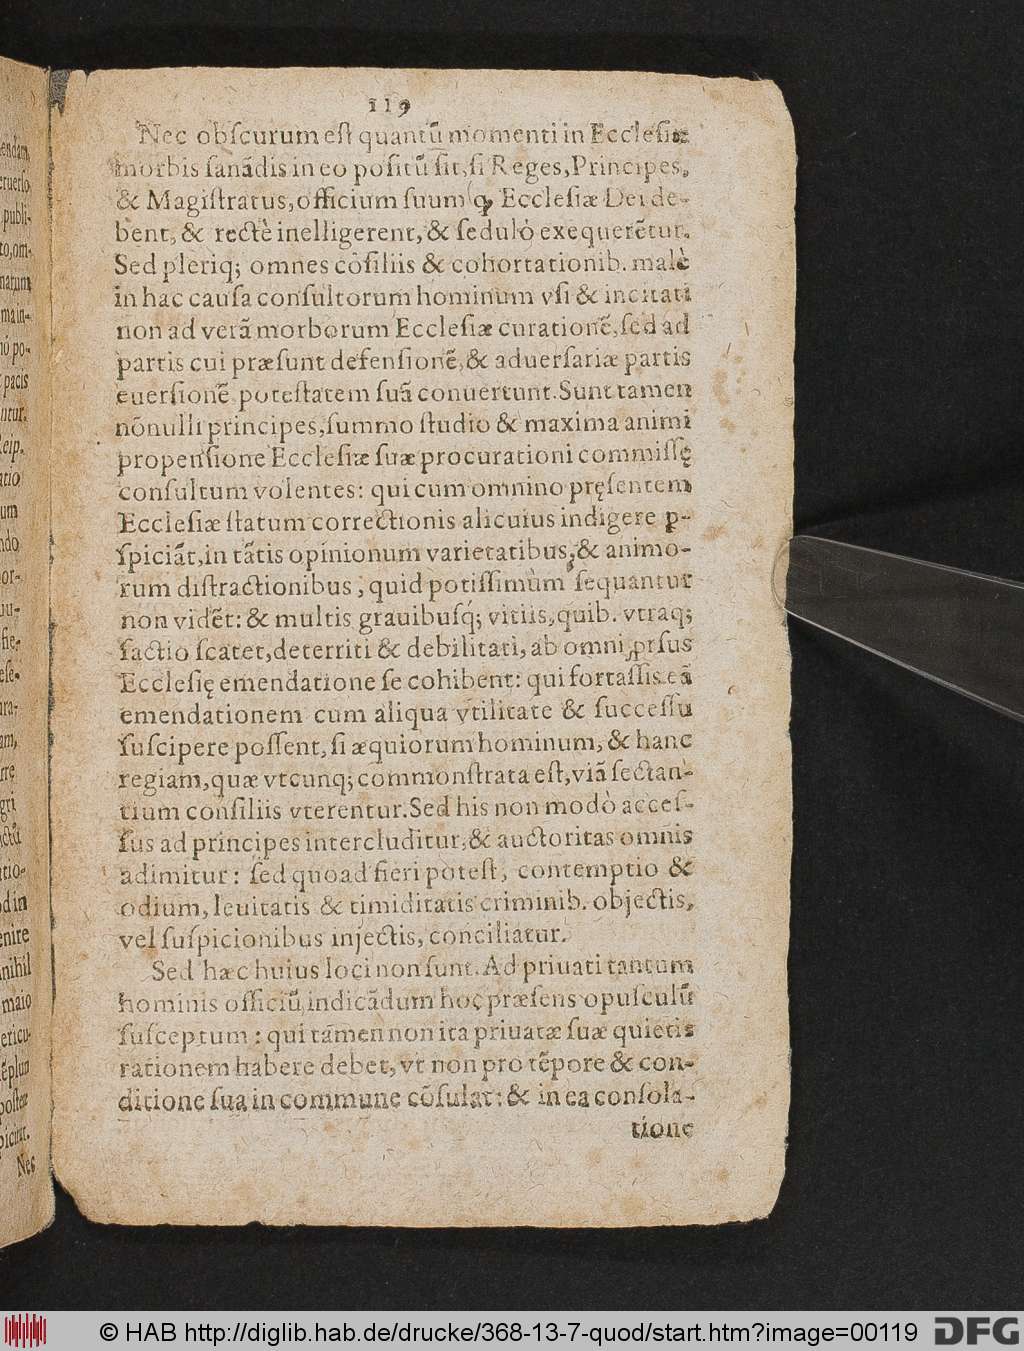 119
Nec obſcurum eſt quantũ momenti in Eccleſiæ
morbis ſanãdis in eo poſitũ ſit, ſi Reges, Principes,
& Magiſtratus, officium ſuum Eccleſiæ Dei de-
bent, & rectè inelligerent, & ſedulò exequerẽtur.
Sed pleriq; omnes cõſiliis & cohortationib. malè
in hac cauſa conſultorum hominum vſi & incitati
non ad verã morborum Eccleſiæ curationẽ, ſed ad
partis cui præſunt defenſionẽ, & aduerſariæ partis
euerſionẽ poteſtatem ſuã conuertunt. Sunt tamen
nõnulli principes, ſummo ſtudio & maxima animi
propenſione Eccleſiæ ſuæ procurationi commiſſę
conſultum volentes: qui cum omnino pręſentem
Eccleſiæ ſtatum correctionis alicuius indigere ꝑ-
ſpiciãt, in tãtis opinionum varietatibus, & animo-
rum diſtractionibus, quid potiſſimùm ſequantur
non vidẽt: & multis grauibuſq́; vitiis, quib. vtraq;
factio ſcatet, deterriti & debilitati, ab omni ꝓrſus
Eccleſię emendatione ſe cohibent: qui fortaſſis eã
emendationem cum aliqua vtilitate & ſucceſſu
ſuſcipere poſſent, ſi æquiorum hominum, & hanc
regiam, quæ vtcunq; commonſtrata eſt, viã ſectan-
tium conſiliis vterentur. Sed his non modò acceſ-
ſus ad principes intercluditur, & auctoritas omnis
adimitur: ſed quoad fieri poteſt, contemptio &
odium, leuitatis & timiditatis criminib. objectis,
vel ſuſpicionibus injectis, conciliatur.
Sed hæc huius loci non ſunt. Ad priuati tantum
hominis officiũ indicãdum hoc præſens opuſculũ
ſuſceptum: qui tãmen non ita priuatæ ſuæ quietis
rationem habere debet, vt non pro tẽpore & con-
ditione ſua in commune cõſulat: & in ea conſola-
tione
publi-
pacis
Reip.
nihil
Nec
© HAB http://diglib.hab.de/drucke/368-13-7-quod/start.htm?image=00119
DFG